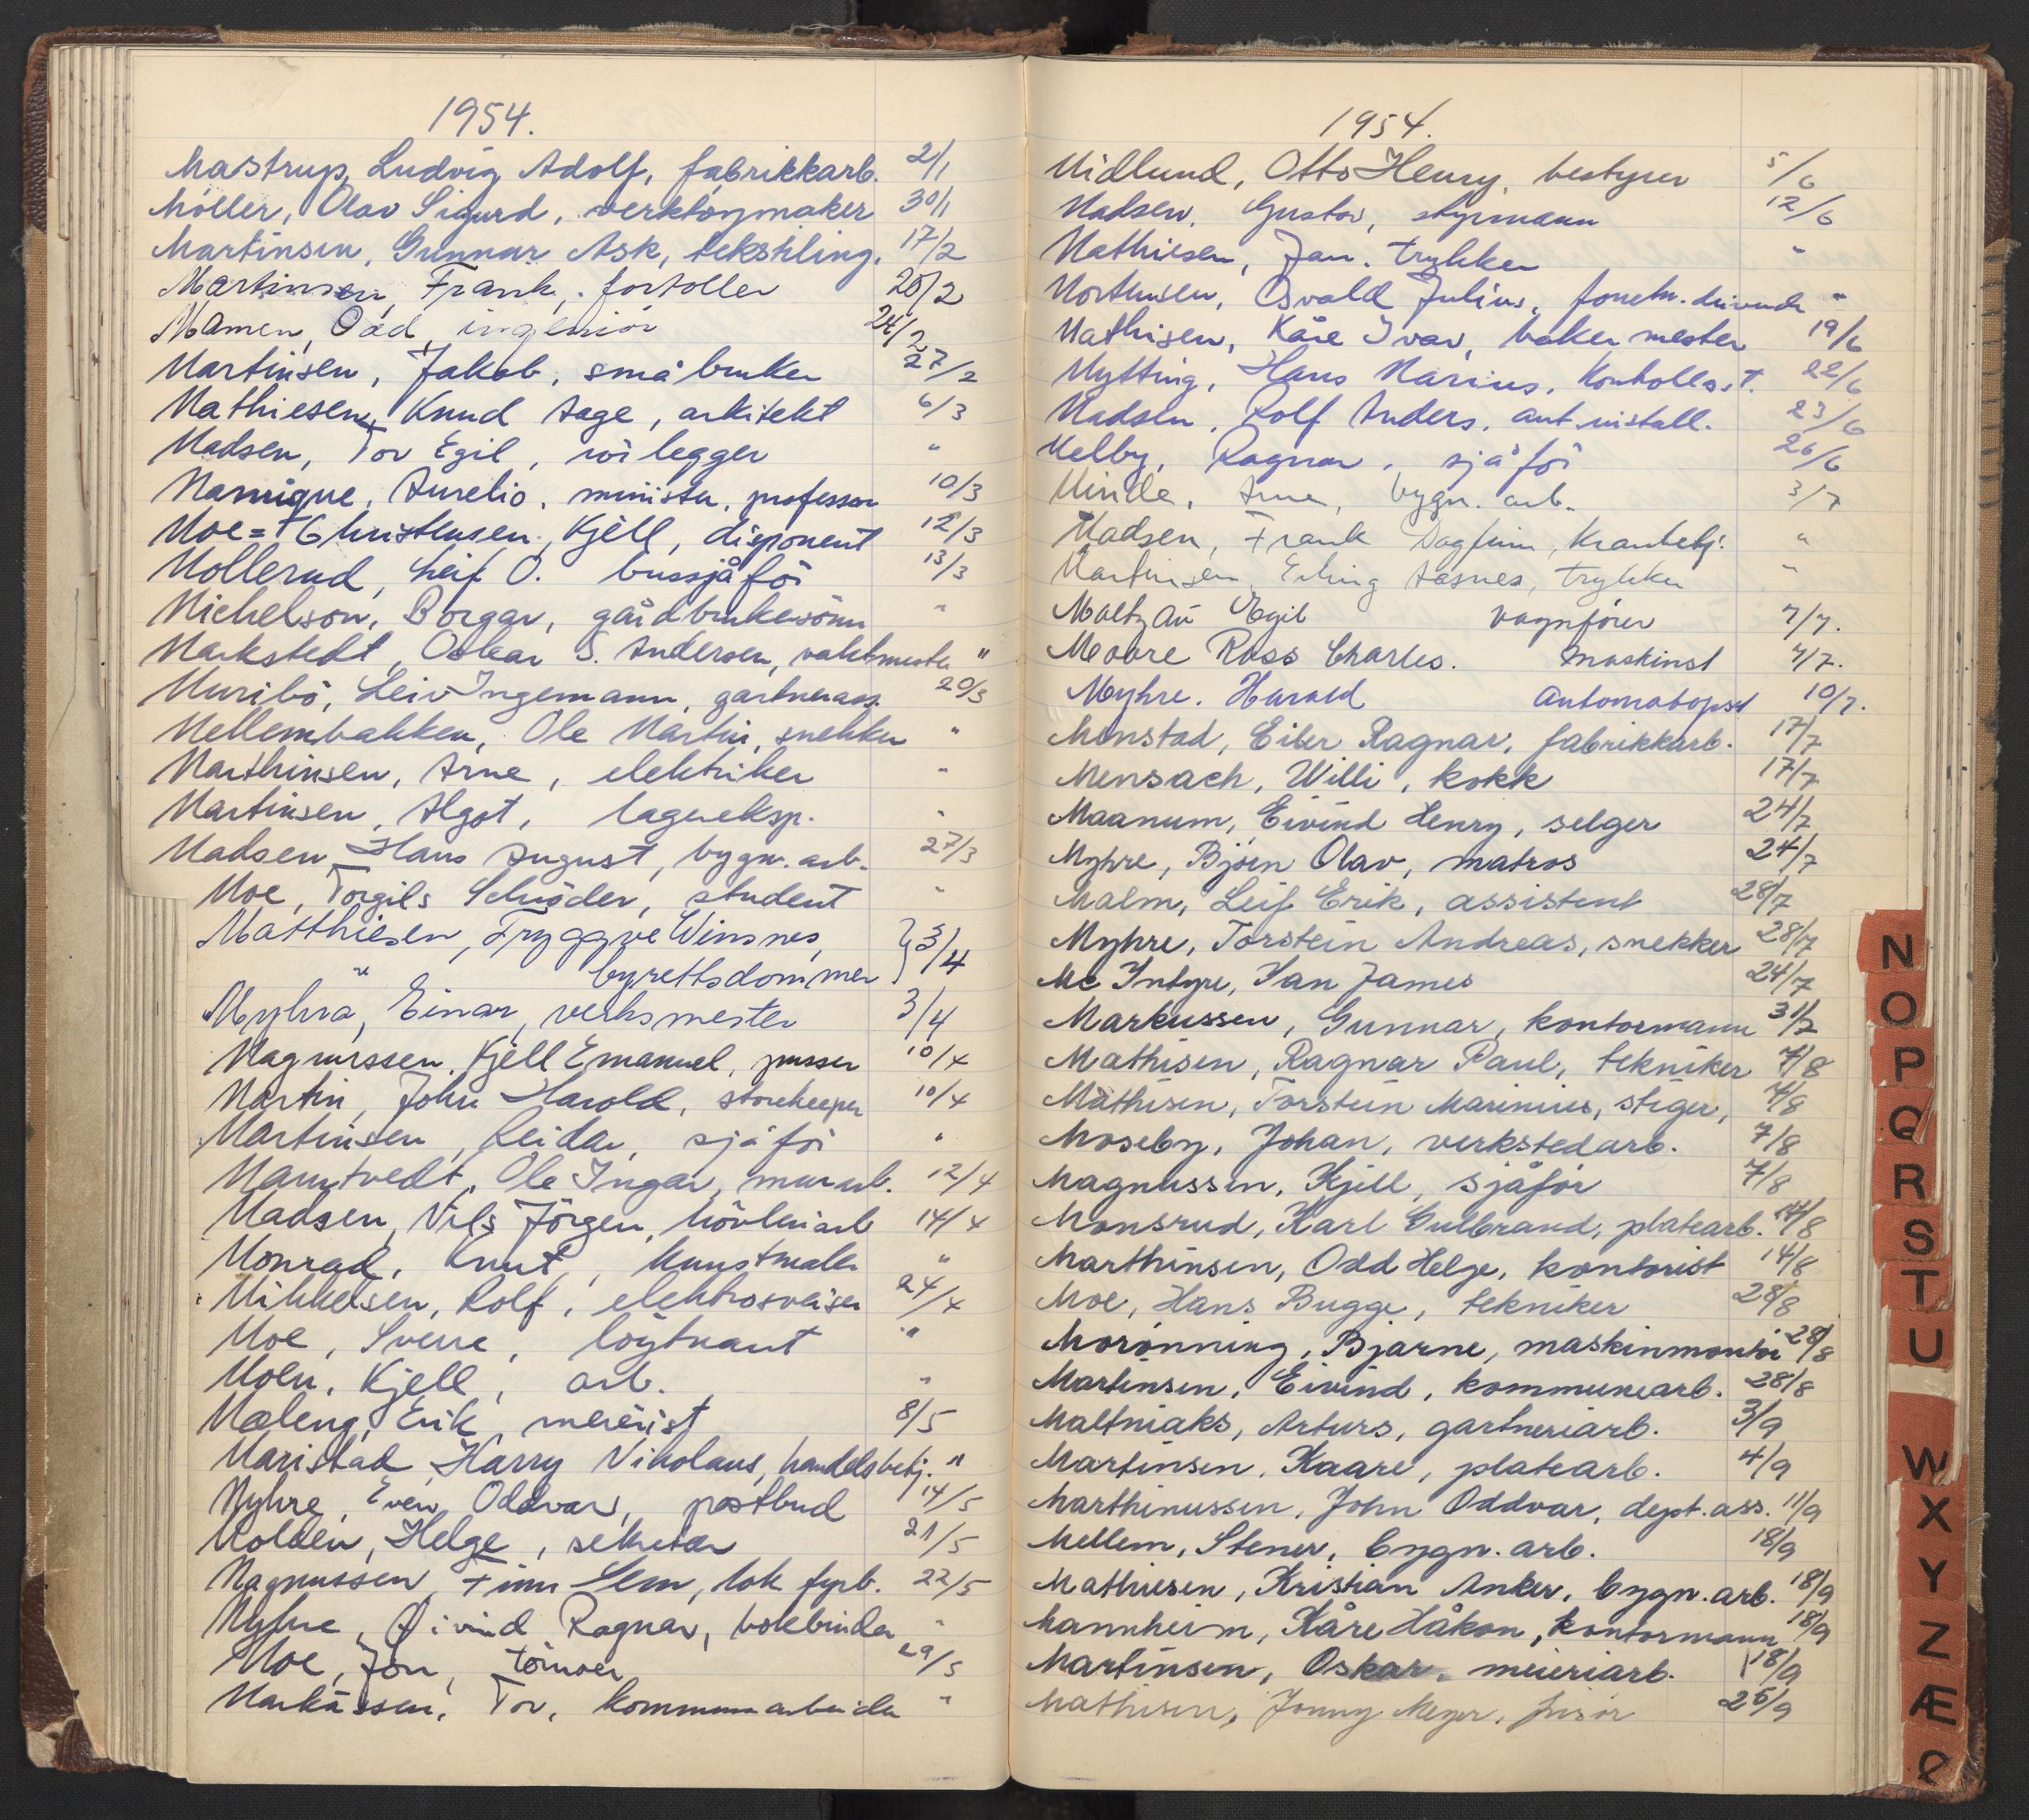 1954.
Mastrup, Ludvig Adolf, fabrikkarb. 2/1
Möller, Olav Sigurd, verktöymaker 30/1
Martinsen, Gunnar Ask, tekstiling. 17/2
Martinsen, Frank, fortoller 20/2
Mamen, Odd, ingeniör 24/2
Martinsen, Jakob, småbruker 27/2
Mathiesen, Knud Aage, arkitekt 6/3
Madsen, Tor Egil, rörlegger "
Manrique, Aurelio, minister, professor 10/3
Moe=Christensen, Kjell, disponent 12/3
Mollerud, Leif O. bussjåför 13/3
Michelson, Borgar, gårdbrukersönn "
Markstedt, Oskar S. Andersen, vaktmester "
Muribö, Leiv Ingemann, gartnerass. 20/3
Mellembakken, Ole Martin, snekker "
Marthinsen, Arne, elektriker "
Martinsen, Algot, lagereksp. "
Madsen, Hans August, bygn. arb. 27/3
Moe, Torgils Schröder, student "
Matthiesen, Tryggve Winsnes, } 3/4
" byrettsdommer
Myhra, Einar, verksmester 3/4
Magnussen, Kjell Emanuel, pusser 10/4
Martin, John Harold, storekeeper 10/4
Martinsen, Reidar, sjåför "
Mamtvedt, Ole Ingar, murarb. 12/4
Madsen, Nils Jörgen, hövleriarb 14/4
Monrad, Knut, kunstmaler "
Mikkelsen, Rolf, elektrosveiser 24/4
Moe, Sverre, löytnant "
Moen, Kjell, arb. "
Mæleng, Erik, meierist 8/5
Maristad, Harry Nikolaus, handelsbetj. "
Myhre, Even Oddvar, postbud 14/5
Molden, Helge, sekretær 21/5
Magnussen, Finn Lem, lok. fyrb. 22/5
Myhre, Øivind Ragnar, bokbinder "
Moe, Jon, tömrer 29/5
Markussen, Tor, kommunearbeider "
1954.
Midlund, Otto Henry, bestyrer 5/6
Madsen, Gustav, styrmann 12/6
Mathiesen, Jan, trykker "
Mortensen, Osvald Julius, forretn. drivende "
Mathisen, Kåre Ivar, bakermester 19/6
Mytting, Hans Marius, kontrollass. 22/6
Madsen, Rolf Anders, aut. install. 23/6
Melby, Ragnar, sjåför 26/6
Minde, Arne, bygn. arb. 3/7
Madsen, Frank Dagfinn, kranbetj. "
Martinsen, Erling Aasnes, trykker "
Maltzau Egil vognförer 7/7.
Moore Ross Charles. maskinst 7/7.
Myhre. Harald Automatopset 10/7.
Monstad, Eiler Ragnar, fabrikkarb. 17/7
Mensach, Willi, kokk 17/7
Maanum, Eivind Henry, selger 24/7
Myhre, Bjørn Olav, matros 24/7
Malm, Leif Erik, assistent 28/7
Myhre, Torstein Andreas, snekker 28/7
Mc Intyre, Ian James 24/7
Markussen, Gunnar, kontormann 31/7
Mathisen, Ragnar Paul, tekniker 7/8
Mathisen, Torstein Marinius, stiger, 7/8
Moseby, Johan, verkstedarb. 7/8
Magnussen, Kjell, sjåför 7/8
Monsrud, Karl Gulbrand, platearb. 14/8
Marthinsen, Odd Helge, kontorist 14/8
Moe, Hans Bugge, tekniker 28/8
Morönning, Bjarne, maskinmontör 28/8
Martinsen, Eivind, kommunearb. 28/8
Maltniaks, Arturs, gartneriarb. 3/9
Martinsen, Kaare, platearb. 4/9
Marthinussen, John Oddvar, dept. ass. 11/9
Mellem, Stener, bygn. arb. 18/9
Mathiesen, Kristian Anker, bygn. arb. 18/9
Mannheim, Kåre Håkon, kontormann 18/9
Martinsen, Oskar, meieriarb. 18/9
Mathisen, Jonny Meyer, frisör 25/9
N
O
P
Q
R
S
T
U
W
X
Y
Z
Æ
Ø